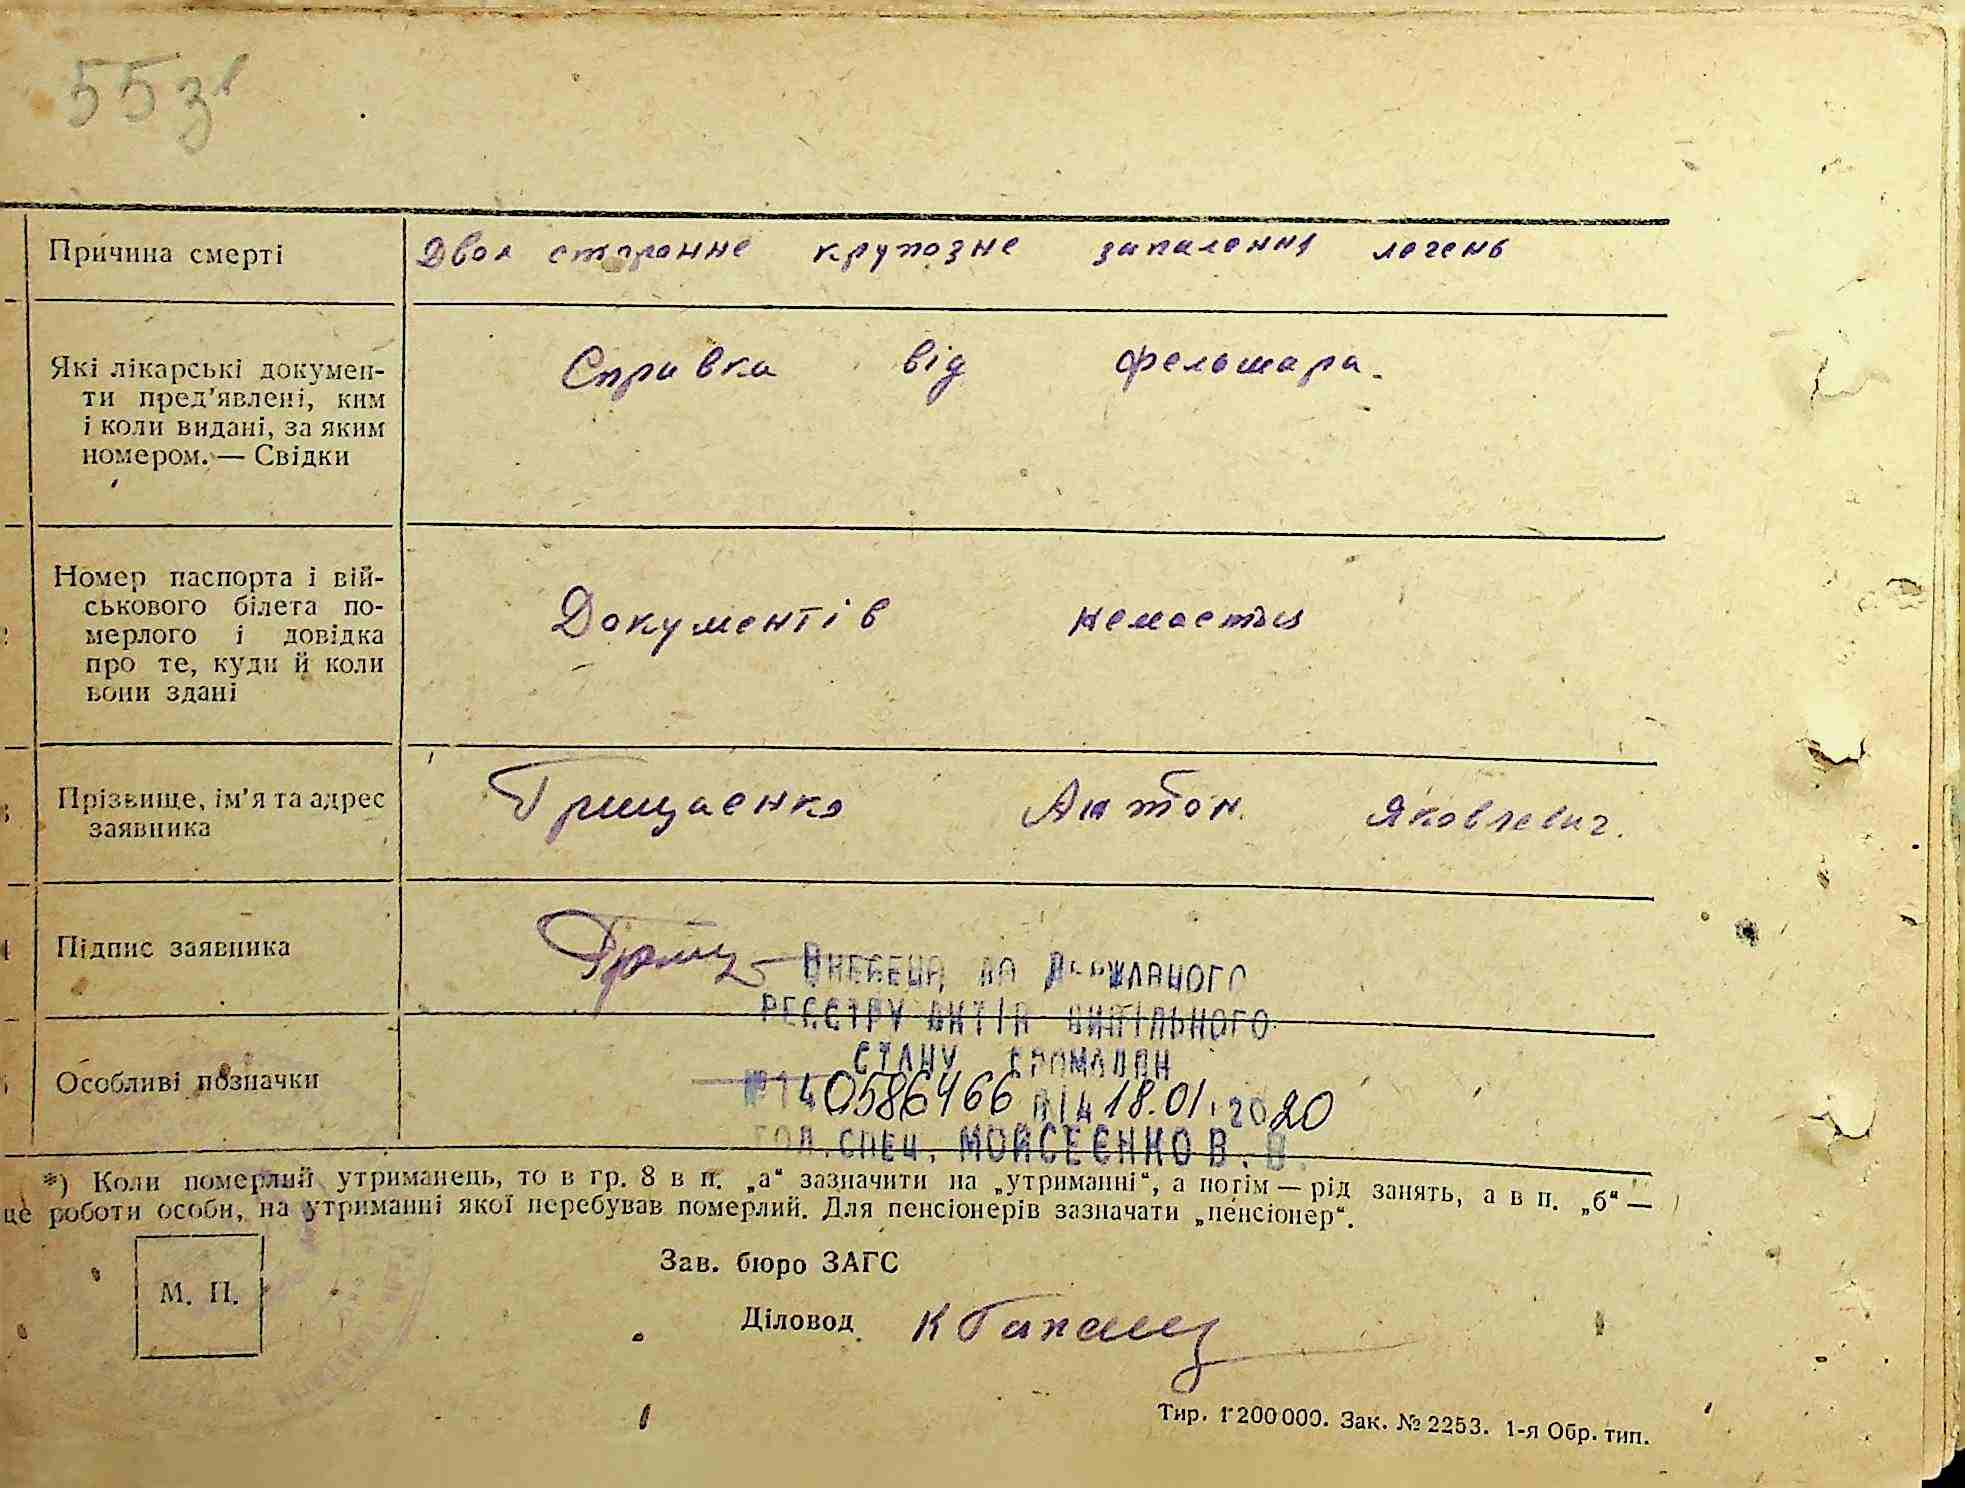 55зв
Причина смерті
Двох сторонне крупозне запалення легень
Які лікарські докумен-
ти пред'явлені, ким
і коли видані, за яким
номером. — Свідки
Справка від фельшара.
Номер паспорта і вій-
ськового білета по-
мерлого і довідка
про те, куди й коли
вони здані
Документів немаєтья
Прізвище, ім'я та адрес
заявника
Грищаєнко Антон Яковлевич.
Підпис заявника
Грищ
Внесено до Державного
реєстру актів цивільного
стану громадян
№ 140586466 від 18.01.2020
гол. спец. Мойсеєнко В. В.
Особливі позначки
*) Коли померлий утриманець, то в гр. 8 в п. „а“ зазначити на „утриманні“, а потім — рід занять, а в п. „б“ —
це роботи особи, на утриманні якої перебував померлий. Для пенсіонерів зазначати „пенсіонер“.
М. П.
Зав. бюро ЗАГС
Діловод
Тир. 1200000. Зак. № 2253. 1-я Обр. тип.